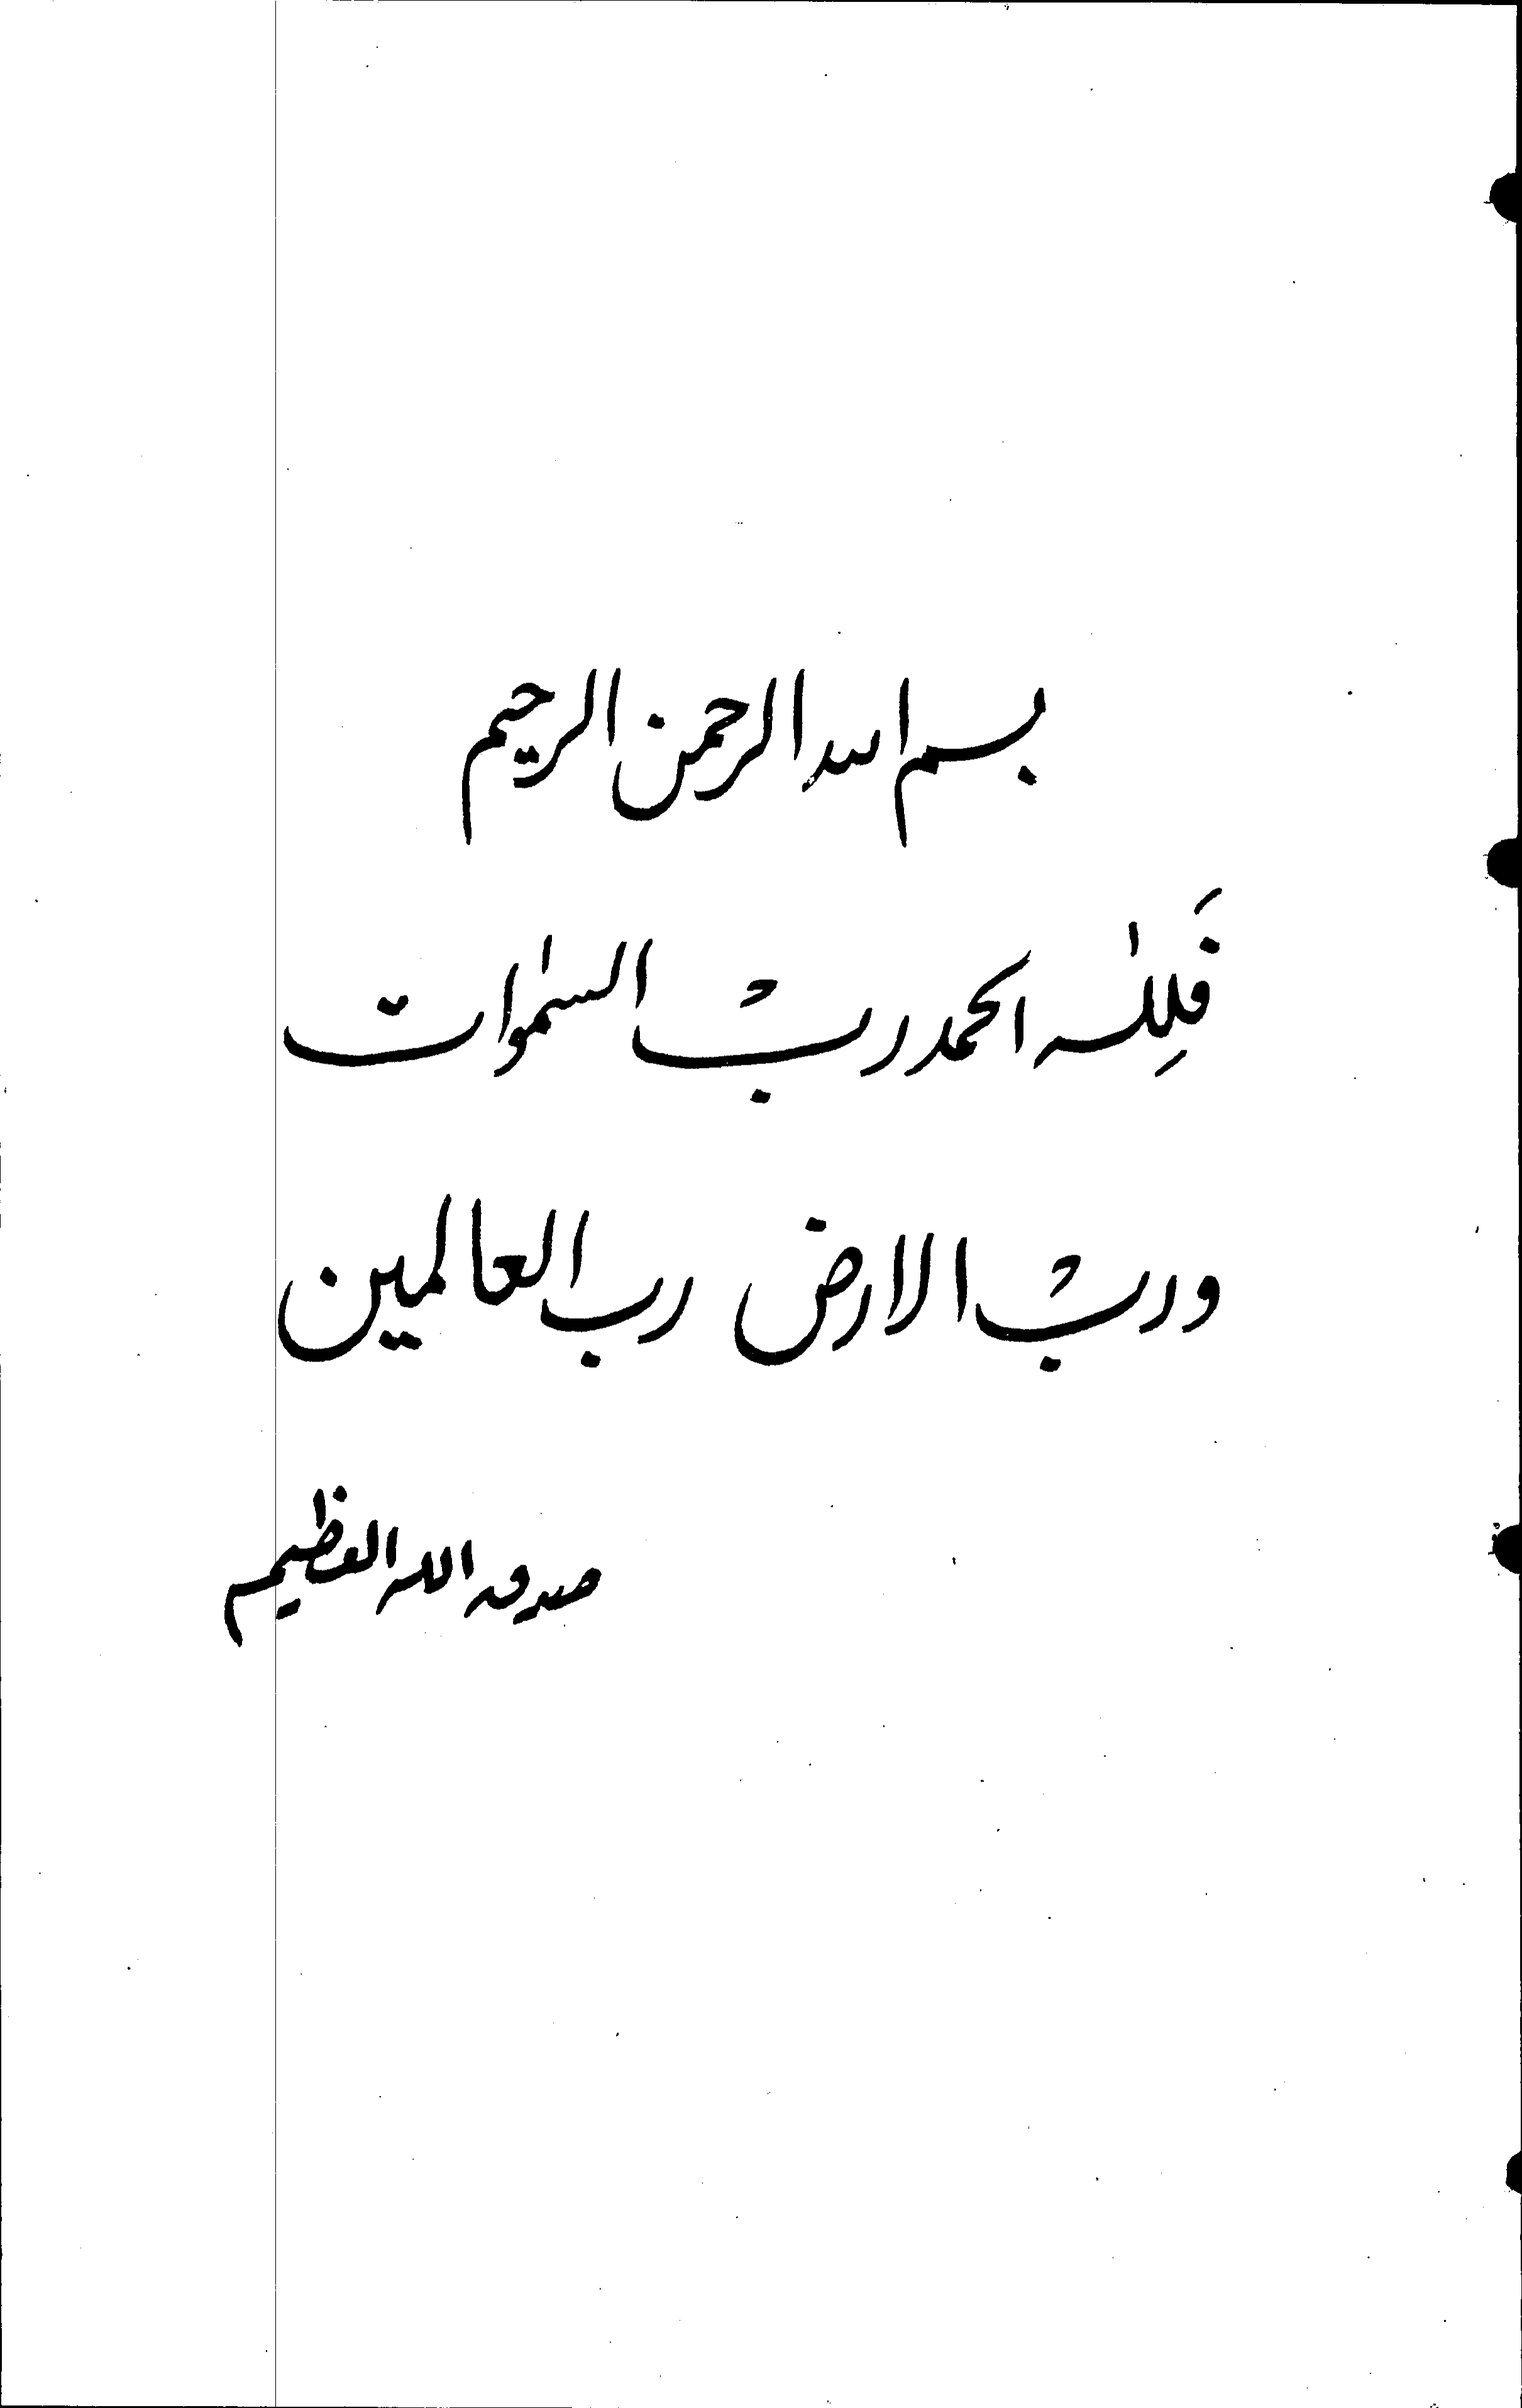 بسم الله الرحمن الرحيم
فَلِلّٰه الحمد ربّ السمٰوات
وربّ الارض رب العالمين
صدق الله العظيم